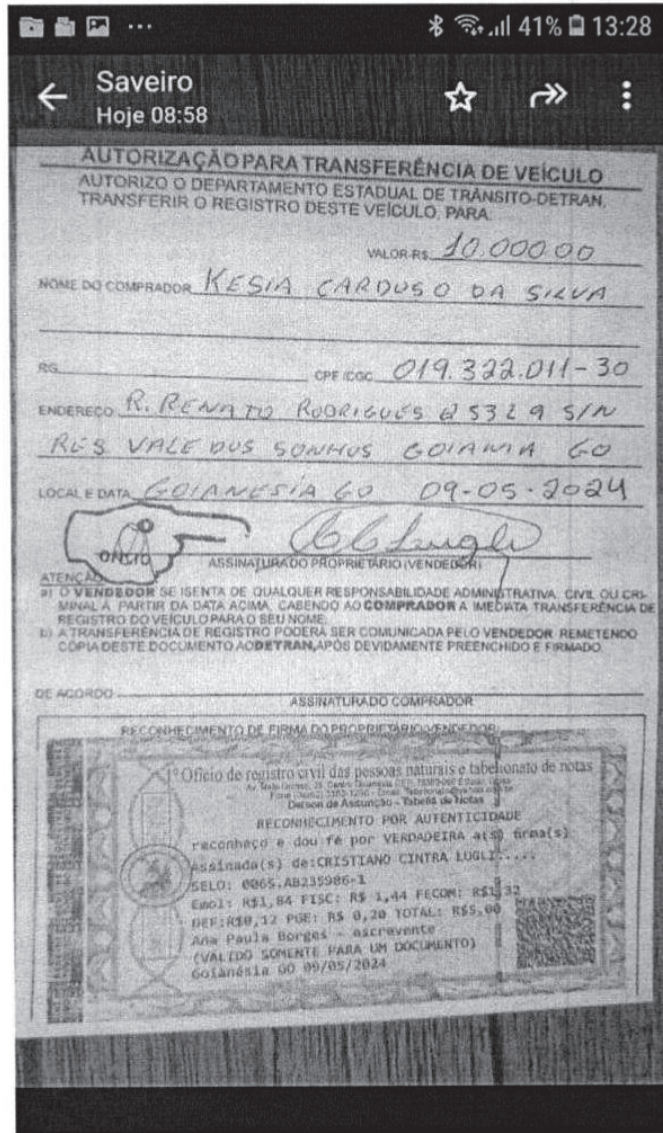 41% 13:28
Saveiro
Hoje 08:58
AUTORIZAÇÃO PARA TRANSFERÊNCIA DE VEÍCULO
AUTORIZO O DEPARTAMENTO ESTADUAL DE TRÂNSITO-DETRAN,
TRANSFERIR O REGISTRO DESTE VEÍCULO, PARA:
VALOR-R$ 10.000.00
NOME DO COMPRADOR KESIA CARDOSO DA SILVA
RG CPF/CGC 019.322.011-30
ENDEREÇO R. RENATO RODRIGUES S/N
RES VALE DOS SONHOS GOIANIA GO
LOCAL E DATA GOIANESIA GO 09-05-2024
ASSINATURA DO PROPRIETÁRIO (VENDEDOR)
ATENÇÃO
a) O VENDEDOR SE ISENTA DE QUALQUER RESPONSABILIDADE ADMINISTRATIVA, CIVIL OU CRI-
MINAL A PARTIR DA DATA ACIMA, CABENDO AO COMPRADOR A IMEDIATA TRANSFERÊNCIA DE
REGISTRO DO VEÍCULO PARA O SEU NOME.
b) A TRANSFERÊNCIA DE REGISTRO PODERÁ SER COMUNICADA PELO VENDEDOR REMETENDO
CÓPIA DESTE DOCUMENTO AO DETRAN, APÓS DEVIDAMENTE PREENCHIDO E FIRMADO
DE ACORDO
ASSINATURA DO COMPRADOR
RECONHECIMENTO DE FIRMA DO PROPRIETÁRIO/VENDEDOR
1º Ofício de registro civil das pessoas naturais e tabelionato de notas
Tabeliã de Notas
RECONHECIMENTO POR AUTENTICIDADE
reconheço e dou fé por VERDADEIRA a(s) firma(s)
Assinada(s) de:CRISTIANO CINTRA LUGLI.....
SELO: 0065.AB235986-1
Emol: R$1,84 FISC: R$ 1,44 FECOM: R$1,32
DEF:R$0,12 PGE: R$ 0,20 TOTAL: R$5,00
Ana Paula Borges - escrevente
(VALIDO SOMENTE PARA UM DOCUMENTO)
Goianésia GO 09/05/2024